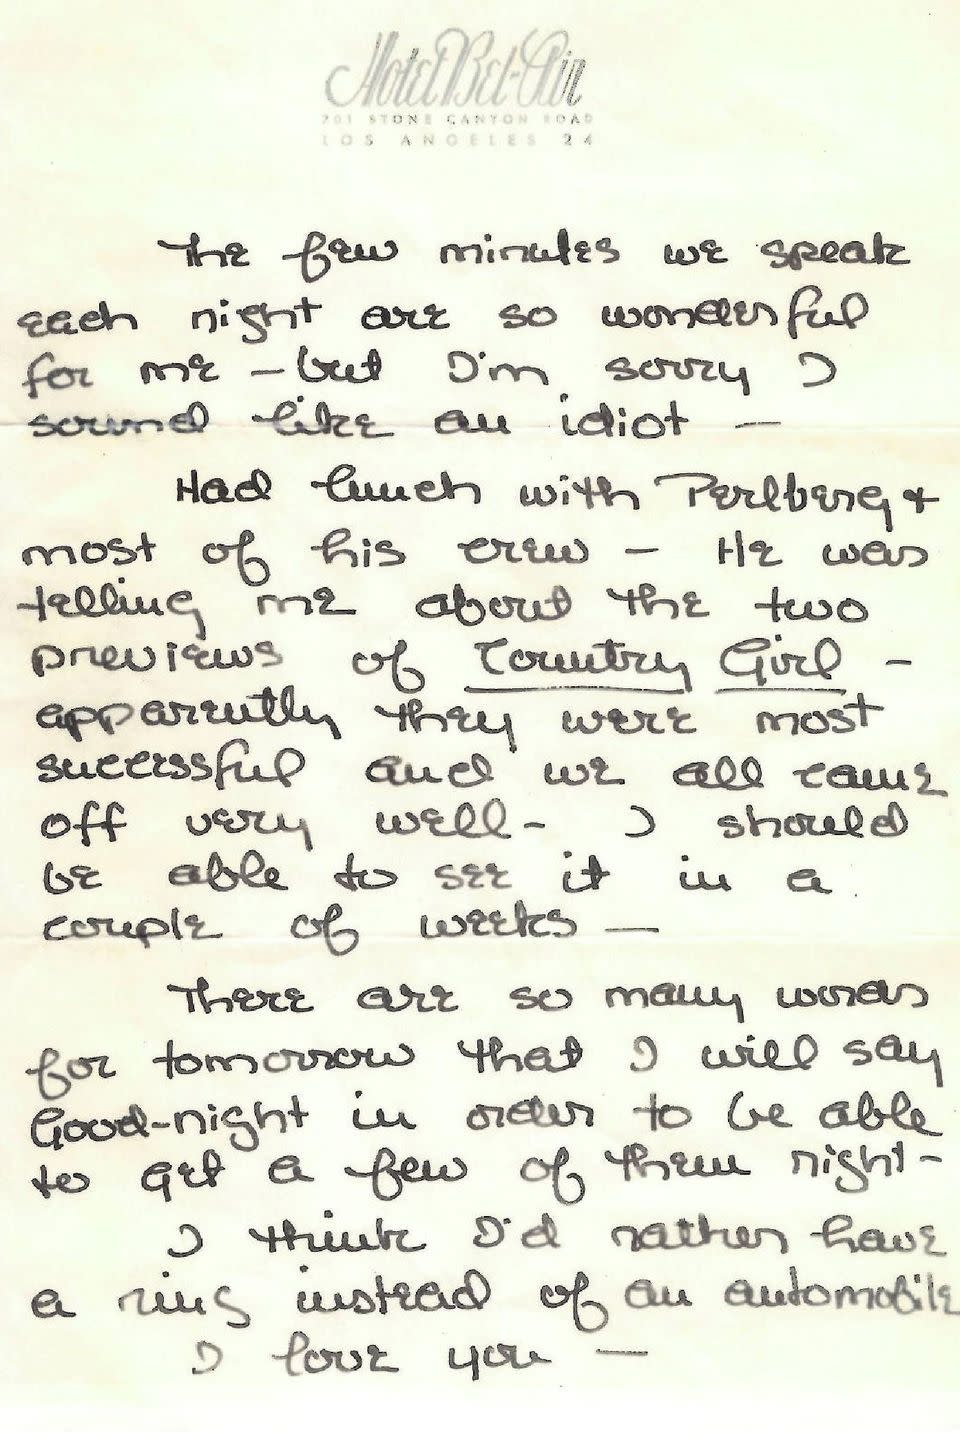 Hotel Bel-Air
701 STONE CANYON ROAD
LOS ANGELES 24
The few minutes we speak
each night are so wonderful
for me – but I'm sorry I
sound like an idiot —
Had lunch with Perlberg &
most of his crew – He was
telling me about the two
previews of Country Girl –
apparently they were most
successful and we all came
off very well - I should
be able to see it in a
couple of weeks —
There are so many words
for tomorrow that I will say
Good-night in order to be able
to get a few of them right -
I think I'd rather have
a ring instead of an automobile
I love you —